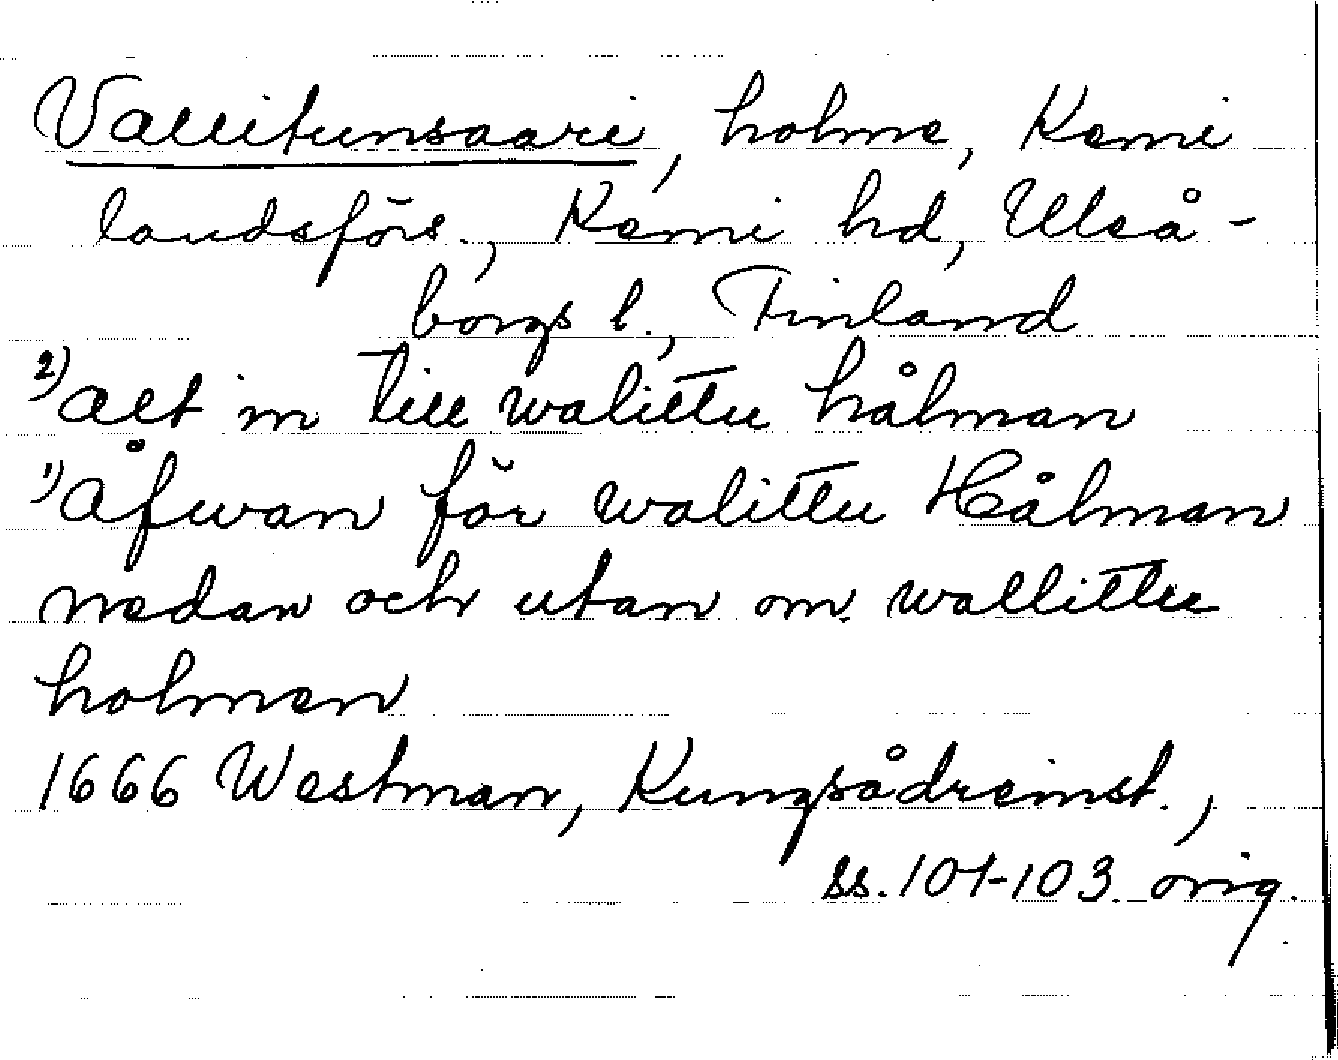 Vallitunsaari, holme, Kemi
landsförs., Kemi hd, Uleå-
borgs l., Finland
2) alt in till walittu hålman
1) Åfwan för walittu Hålman
nedan och utan om wallittu
holmen
1666 Westman, Kungsådreinst.,
ss. 101-103 orig.